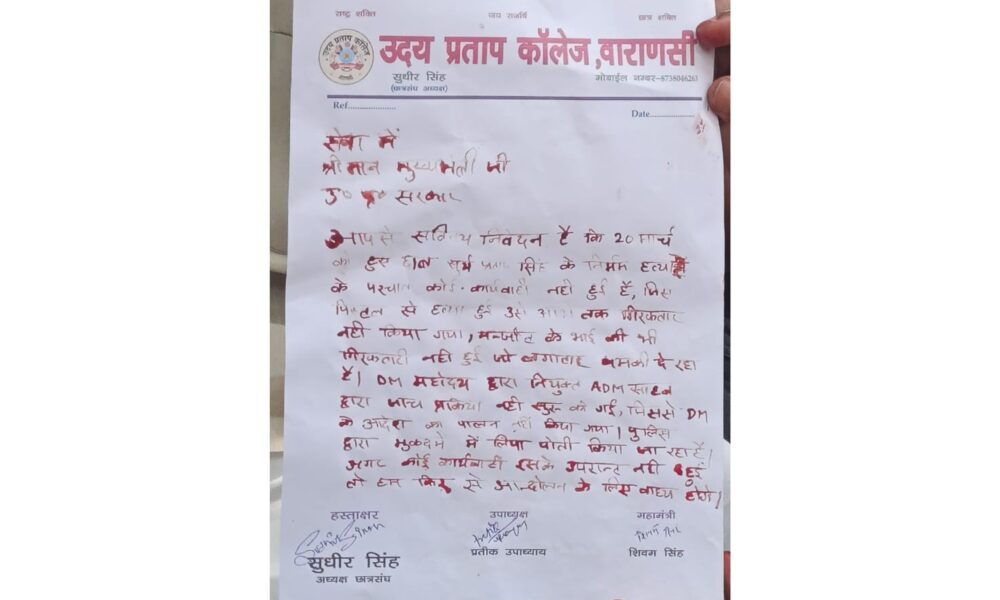 राष्ट्र शक्ति जय राजर्षि छात्र शक्ति
उदय प्रताप कॉलेज, वाराणसी
सुधीर सिंह मोबाईल नम्बर-8738046263
(छात्रसंघ अध्यक्ष)
Ref.................... Date....................
सेवा में
श्री मान मुख्यमंत्री जी
उ० प्र० सरकार
आप से सविनय निवेदन है कि 20 मार्च
को हुए छात्र सूर्य प्रताप सिंह के निर्मम हत्या
के पश्चात कोई कार्यवाही नहीं हुई है, जिस
पिस्टल से हत्या हुई उसे आज तक गिरफतार
नहीं किया गया, मन्जीत के भाई की भी
गिरफतारी नहीं हुई जो लगातार धमकी दे रहा
है। DM महोदय द्वारा नियुक्त ADM साहब
द्वारा जांच प्रक्रिया नहीं सुरु की गई, जिससे DM
के आदेश का पालन नहीं किया गया। पुलिस
द्वारा मुकदमे में लिपा पोती किया जा रहा है।
अगर कोई कार्यवाही इसके उपरान्त नहीं हुई
तो हम फिर से आन्दोलन के लिए बाध्य होंगे।
हस्ताक्षर उपाध्यक्ष महामंत्री
सुधीर सिंह प्रतीक उपाध्याय शिवम सिंह
अध्यक्ष छात्रसंघ